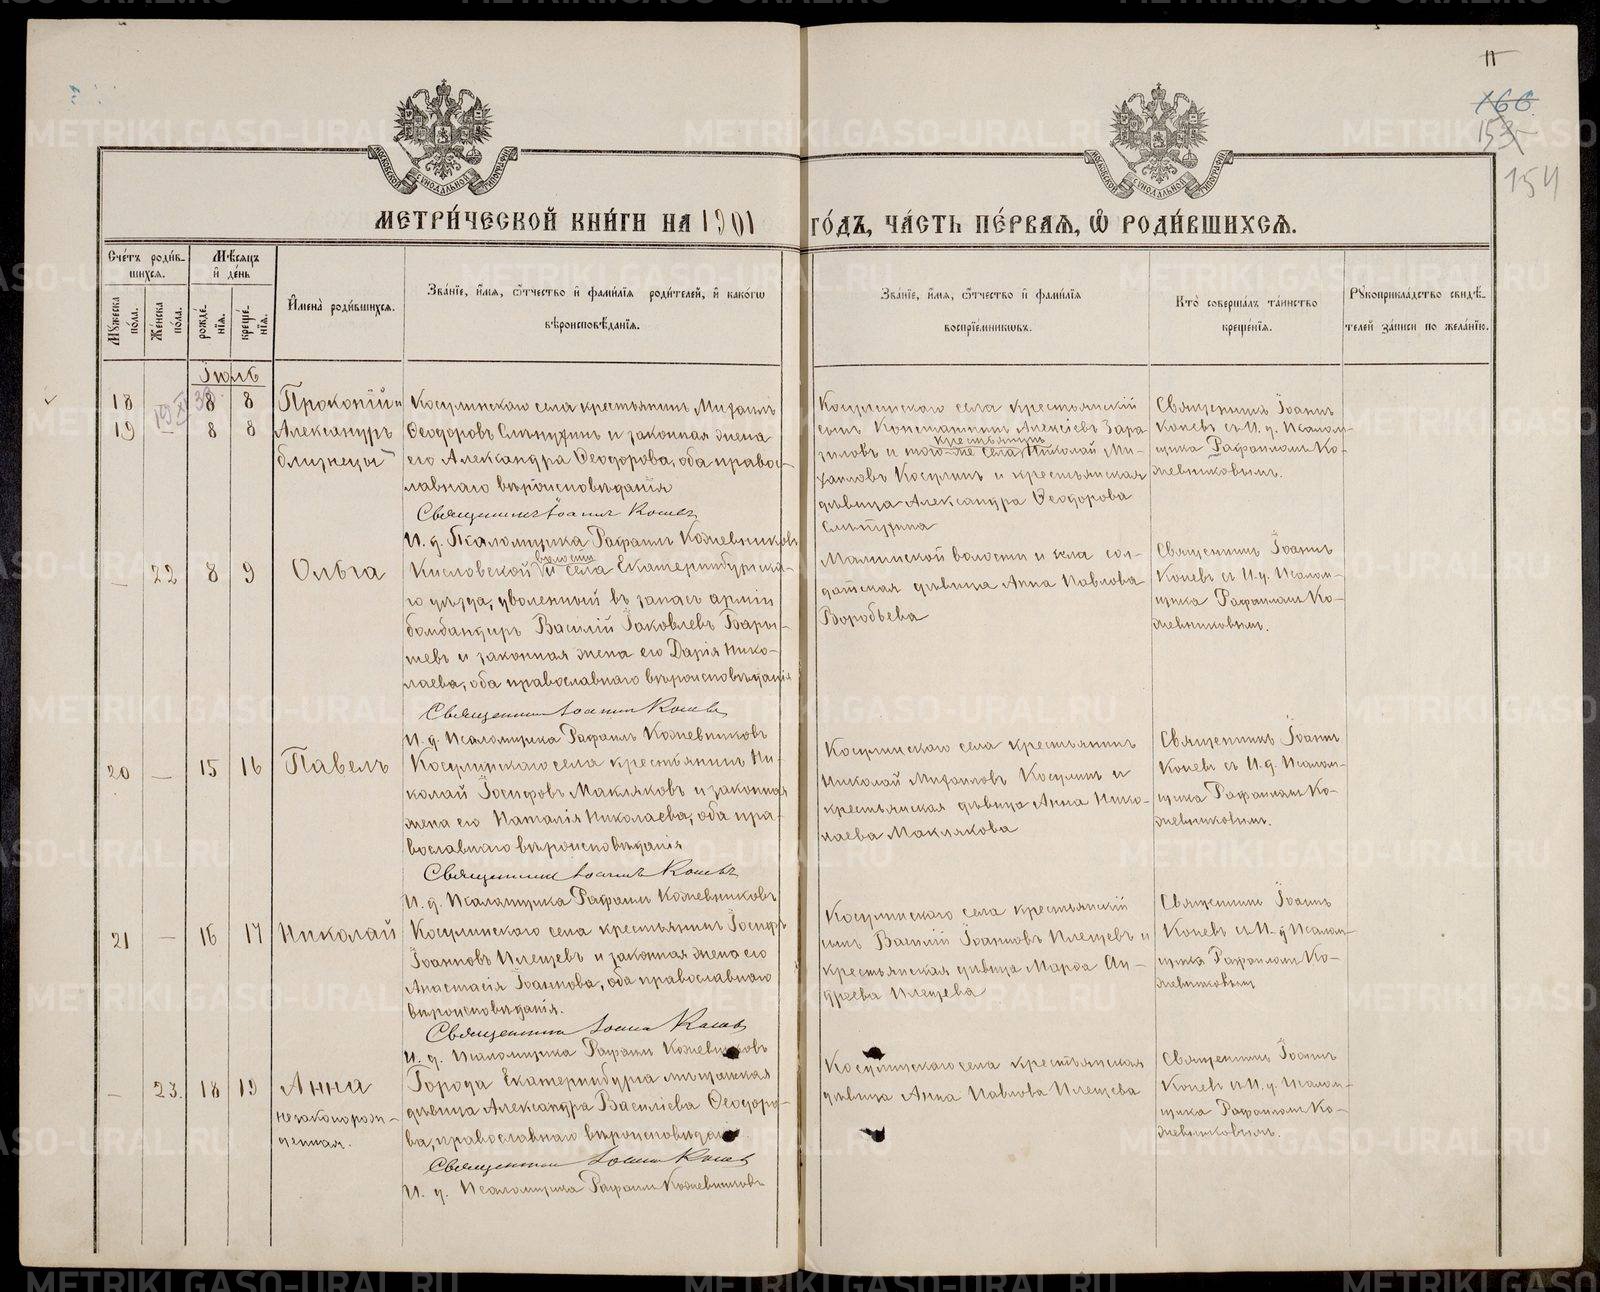 11
166
153
154
МОСКОВСКОЙ СѴНОДАЛЬНОЙ ТИПОГРАФІИ
МОСКОВСКОЙ СѴНОДАЛЬНОЙ ТИПОГРАФІИ
МЕТРИ́ЧЕСКОЙ КНИ́ГИ НА 1901 ГО́ДЪ, ЧА́СТЬ ПЕ́РВАѦ, Ѽ РОДИ́ВШИХСѦ.
Сче́тъ роди́в-
шихсѧ.
Мꙋжеска по́ла.
Же́нска по́ла.
Мѣ́сѧцъ и҆ де́нь
рожде́-
нїѧ.
креще́-
нїѧ.
И҆мена̀ роди́вшихсѧ.
Зва́нїе, и҆́мѧ, ѻ҆́тчество и҆ фами́лїѧ роди́телей, и҆ како́гѡ
вѣроисповѣ́данїѧ.
Зва́нїе, и҆́мѧ, ѻ҆́тчество и҆ фами́лїѧ
воспрїе́мникѡвъ.
Кто̀ соверша́лъ та́инство
креще́нїѧ.
Рꙋкоприкла́дство свидѣ́-
телей за́писи по жела́нїю.
Іюль
18 8 8 Прокопій и
19 — 8 8 Александръ
близнецы
Косулинскаго села крестьянинъ Михаилъ
Ѳеодоровъ Слѣпухинъ и законная жена
его Александра Ѳеодорова, оба правос-
лавнаго вѣроисповѣданія
Священникъ Іоаннъ Коневъ
И. д. Псаломщика Рафаилъ Кожевниковъ
Косулинскаго села крестьянскій
сынъ Константинъ Алексіевъ Зара
зиловъ и того-же села крестьянинъ Николай Ми-
хаиловъ Косулинъ и крестьянская
дѣвица Александра Ѳеодорова
Слѣпухина
Священникъ Іоаннъ
Коневъ съ И. д. Псалом-
щика Рафаиломъ Ко-
жевниковымъ.
— 22 8 9 Ольга
Кисловской волости и села Екатеринбургска-
го уѣзда, уволенный въ запасъ арміи
бомбандиръ Василій Іаковлевъ Бары-
шевъ и законная жена его Дарія Нико-
лаева, оба православнаго вѣроисповѣданія
Священникъ Іоаннъ Коневъ
И. д. Псаломщика Рафаилъ Кожевниковъ
Маминской волости и села сол-
датская дѣвица Анна Павлова
Воробьева
Священникъ Іоаннъ
Коневъ съ И. д. Псалом-
щика Рафаиломъ Ко-
жевниковымъ.
20 — 15 16 Павелъ
Косулинскаго села крестьянинъ Ни-
колай Іосифовъ Макляковъ и законная
жена его Наталія Николаева, оба пра-
вославнаго вѣроисповѣданія
Священникъ Іоаннъ Коневъ
И. д. Псаломщика Рафаилъ Кожевниковъ
Косулинскаго села крестьянинъ
Николай Михаиловъ Косулинъ и
крестьянская дѣвица Анна Нико-
лаева Маклякова
Священникъ Іоаннъ
Коневъ съ И. д. Псалом-
щика Рафаиломъ Ко-
жевниковымъ.
21 — 16 17 Николай
Косулинскаго села крестьянинъ Іосифъ
Іоанновъ Плещевъ и законная жена его
Анастасія Іоаннова, оба православнаго
вѣроисповѣданія.
Священникъ Іоаннъ Коневъ
И. д. Псаломщика Рафаилъ Кожевниковъ
Косулинскаго села крестьянскій
сынъ Василій Іоанновъ Плещевъ и
крестьянская дѣвица Марѳа Ан-
дреева Плещева
Священникъ Іоаннъ
Коневъ съ И. д. Псалом-
щика Рафаиломъ Ко-
жевниковымъ
— 23. 18 19 Анна
незаконорож-
денная.
Города Екатеринбурга мѣщанская
дѣвица Александра Василіева Ѳеодоро-
ва, православнаго вѣроисповѣданія.
Священникъ Іоаннъ Коневъ
И. д. Псаломщика Рафаилъ Кожевниковъ
Косулинскаго села крестьянская
дѣвица Анна Павлова Плещева
Священникъ Іоаннъ
Коневъ съ И. д. Псалом-
щика Рафаиломъ Ко-
жевниковымъ.
METRIKI.GASO-URAL.RU